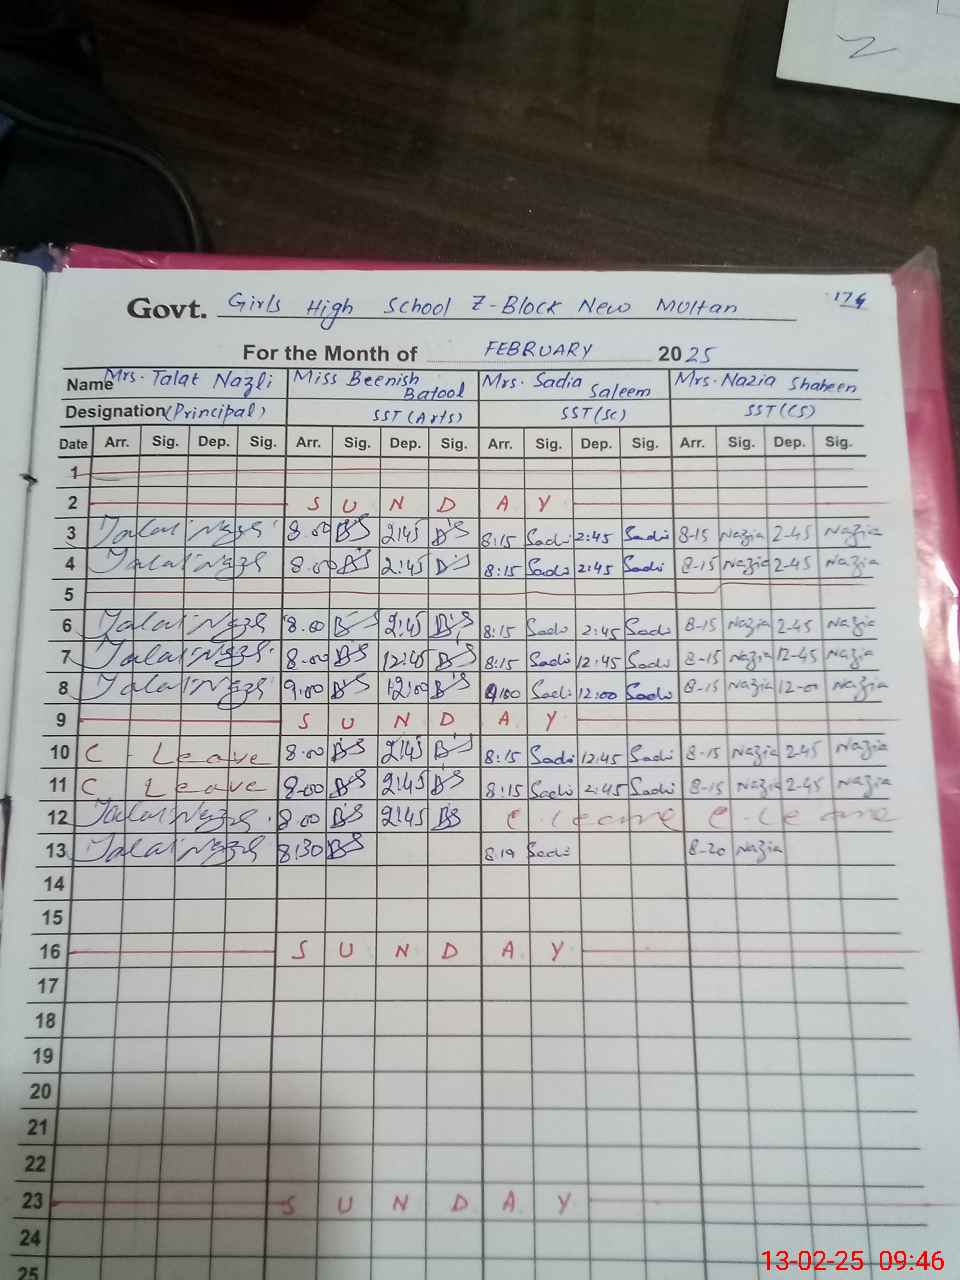 176
Govt. Girls High School Z-Block New Multan
For the Month of FEBRUARY 2025
Name Mrs. Talat Nazli Miss Beenish Batool Mrs. Sadia Saleem Mrs. Nazia Shaheen
Designation (Principal) SST (Arts) SST (Sc) SST (CS)
Date Arr. Sig. Dep. Sig. Arr. Sig. Dep. Sig. Arr. Sig. Dep. Sig. Arr. Sig. Dep. Sig.
1
2 S U N D A Y
3 Talat Nazli 8.00 BS 2:45 BS 8:15 Sadi 2:45 Sadi 8-15 Nazia 2-45 Nazia
4 Talat Nazli 8.00 BS 2:45 BS 8:15 Sadi 2:45 Sadi 8-15 Nazia 2-45 Nazia
5
6 Talat Nazli 8.00 BS 2:45 BS 8:15 Sadi 2:45 Sadi 8-15 Nazia 2-45 Nazia
7 Talat Nazli 8.00 BS 12:45 BS 8:15 Sadi 12:45 Sadi 8-15 Nazia 12-45 Nazia
8 Talat Nazli 9.00 BS 12:00 BS 9:00 Sadi 12:00 Sadi 8-15 Nazia 12-00 Nazia
9 S U N D A Y
10 C - Leave 8.00 BS 2:45 BS 8:15 Sadi 12:45 Sadi 8-15 Nazia 2-45 Nazia
11 C Leave 8.00 BS 2:45 BS 8:15 Sadi 2:45 Sadi 8-15 Nazia 2-45 Nazia
12 Talat Nazli 8.00 BS 2:45 BS C. Leave C. Leave
13 Talat Nazli 8:30 BS 8.19 Sadi 8-20 Nazia
14
15
16 S U N D A Y
17
18
19
20
21
22
23 S U N D A Y
24
25
13-02-25 09:46